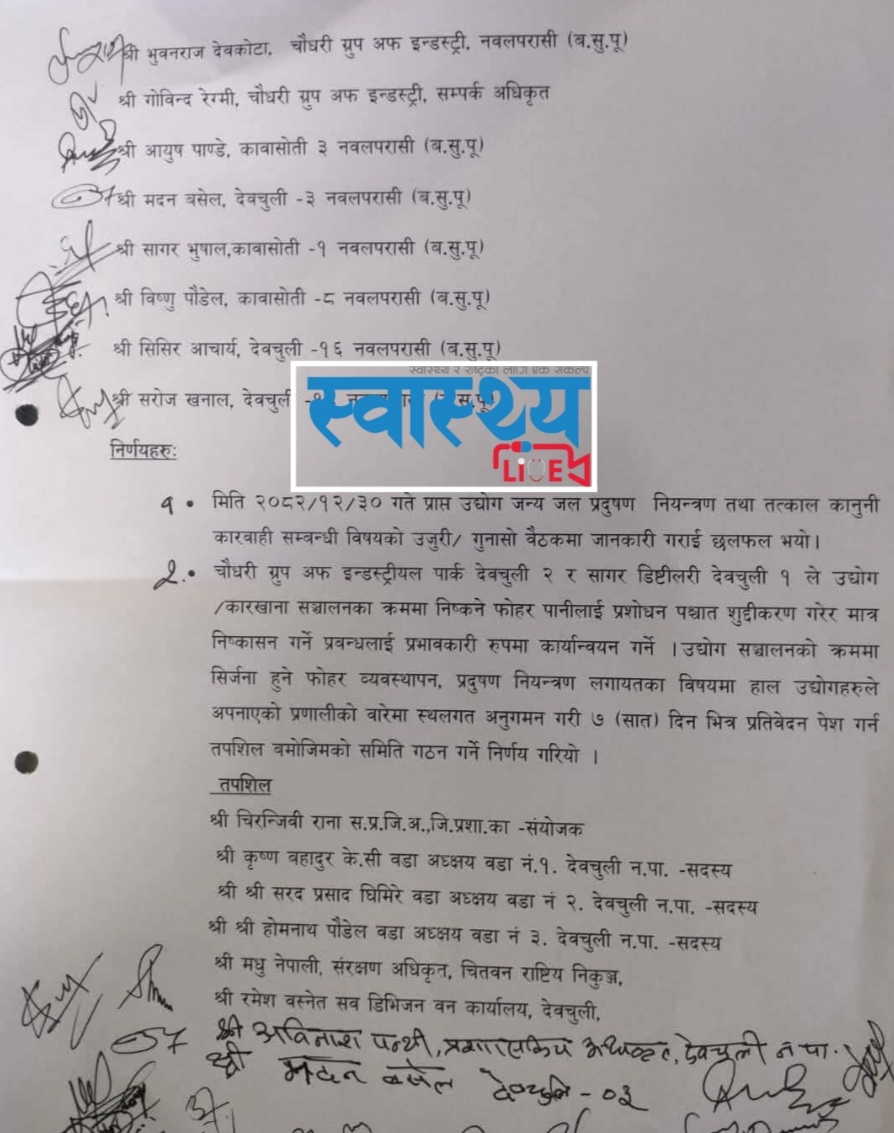 श्री भुवनराज देवकोटा, चौधरी ग्रुप अफ इन्डस्ट्री, नवलपरासी (ब.सु.पू)
श्री गोविन्द रेग्मी, चौधरी ग्रुप अफ इन्डस्ट्री, सम्पर्क अधिकृत
श्री आयुष पाण्डे, कावासोती ३ नवलपरासी (ब.सु.पू)
श्री मदन बसेल, देवचुली -३ नवलपरासी (ब.सु.पू)
श्री सागर भुषाल,कावासोती -१ नवलपरासी (ब.सु.पू)
श्री विष्णु पौडेल, कावासोती -८ नवलपरासी (ब.सु.पू)
श्री सिसिर आचार्य, देवचुली -१६ नवलपरासी (ब.सु.पू)
स्वास्थ्य र राष्ट्रका लागि एक संकल्प
श्री सरोज खनाल, देवचुली
स्वास्थ्य
LIVE
निर्णयहरु:
१ • मिति २०८२/१२/३० गते प्राप्त उद्योग जन्य जल प्रदुषण नियन्त्रण तथा तत्काल कानुनी
कारवाही सम्बन्धी विषयको उजुरी/ गुनासो वैठकमा जानकारी गराई छलफल भयो।
२. • चौधरी ग्रुप अफ इन्डस्ट्रीयल पार्क देवचुली २ र सागर डिष्टीलरी देवचुली १ ले उद्योग
/कारखाना सञ्चालनका क्रममा निष्कने फोहर पानीलाई प्रशोधन पश्चात शुद्दीकरण गरेर मात्र
निष्कासन गर्ने प्रवन्धलाई प्रभावकारी रुपमा कार्यान्वयन गर्ने ।उद्योग सञ्चालनको क्रममा
सिर्जना हुने फोहर व्यवस्थापन, प्रदुषण नियन्त्रण लगायतका विषयमा हाल उद्योगहरुले
अपनाएको प्रणालीको वारेमा स्थलगत अनुगमन गरी ७ (सात) दिन भित्र प्रतिवेदन पेश गर्न
तपशिल वमोजिमको समिति गठन गर्ने निर्णय गरियो ।
तपशिल
श्री चिरन्जिवी राना स.प्र.जि.अ.,जि.प्रशा.का -संयोजक
श्री कृष्ण बहादुर के.सी वडा अध्क्षय वडा नं.१. देवचुली न.पा. -सदस्य
श्री श्री सरद प्रसाद घिमिरे वडा अध्क्षय वडा नं २. देवचुली न.पा. -सदस्य
श्री श्री होमनाथ पौडेल वडा अध्क्षय वडा नं ३. देवचुली न.पा. -सदस्य
श्री मधु नेपाली, संरक्षण अधिकृत, चितवन राष्टिय निकुञ्ज,
श्री रमेश वस्नेत सव डिभिजन वन कार्यालय, देवचुली,
श्री अविनाश पन्थी, प्रशासकिय अधिकृत, देवचुली न.पा.
श्री मदन बसेल देवचुली - ०३